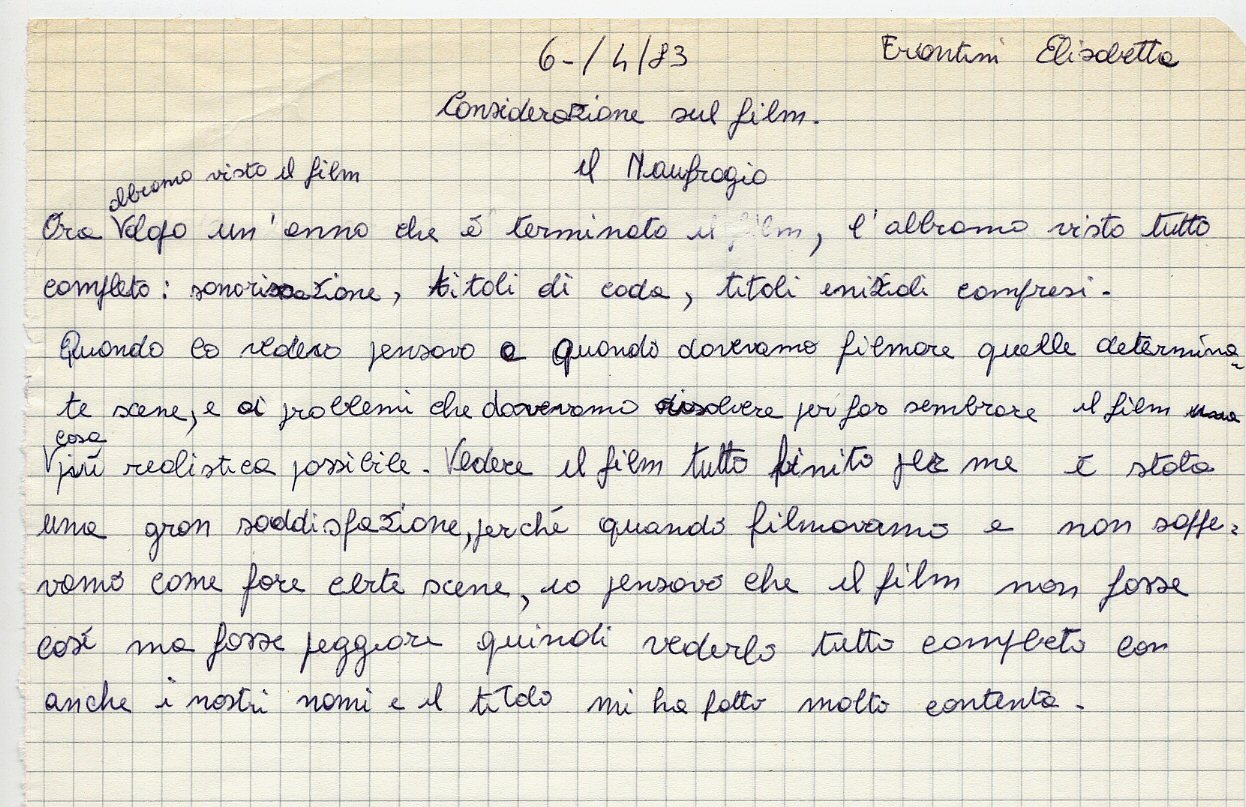 6-/4/83 Erontini Elisabetta
Considerazione sul film.
il Naufragio
abbiamo visto il film
Ora dopo un'anno che è terminato il film, l'abbiamo visto tutto
completo: sonorizzazione, titoli di coda, titoli iniziali compresi.
Quando lo vedevo pensavo a quando dovevamo filmare quelle determina-
te scene, e ai problemi che dovevamo risolvere per far sembrare il film
cosa
più realistica possibile. Vedere il film tutto finito per me è stata
una gran soddisfazione, perché quando filmavamo e non sape=
vamo come fare certe scene, io pensavo che il film non fosse
così ma fosse peggiore quindi vederlo tutto completo con
anche i nostri nomi e il titolo mi ha fatto molto contenta.